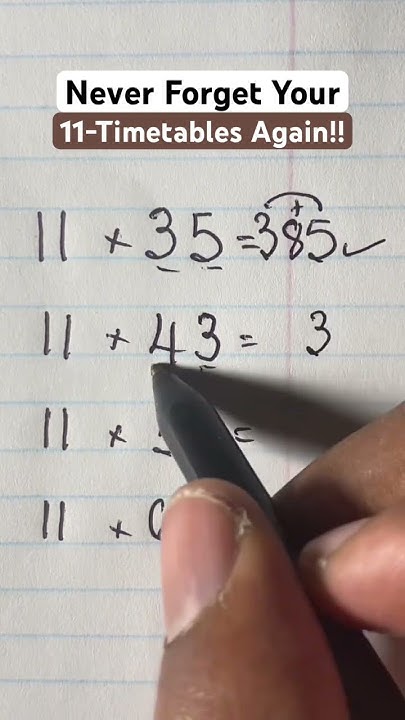 Never Forget Your
11-Timetables Again!!
11 × 35 = 385 ✓
11 × 43 = 3
11 × =
11 ×